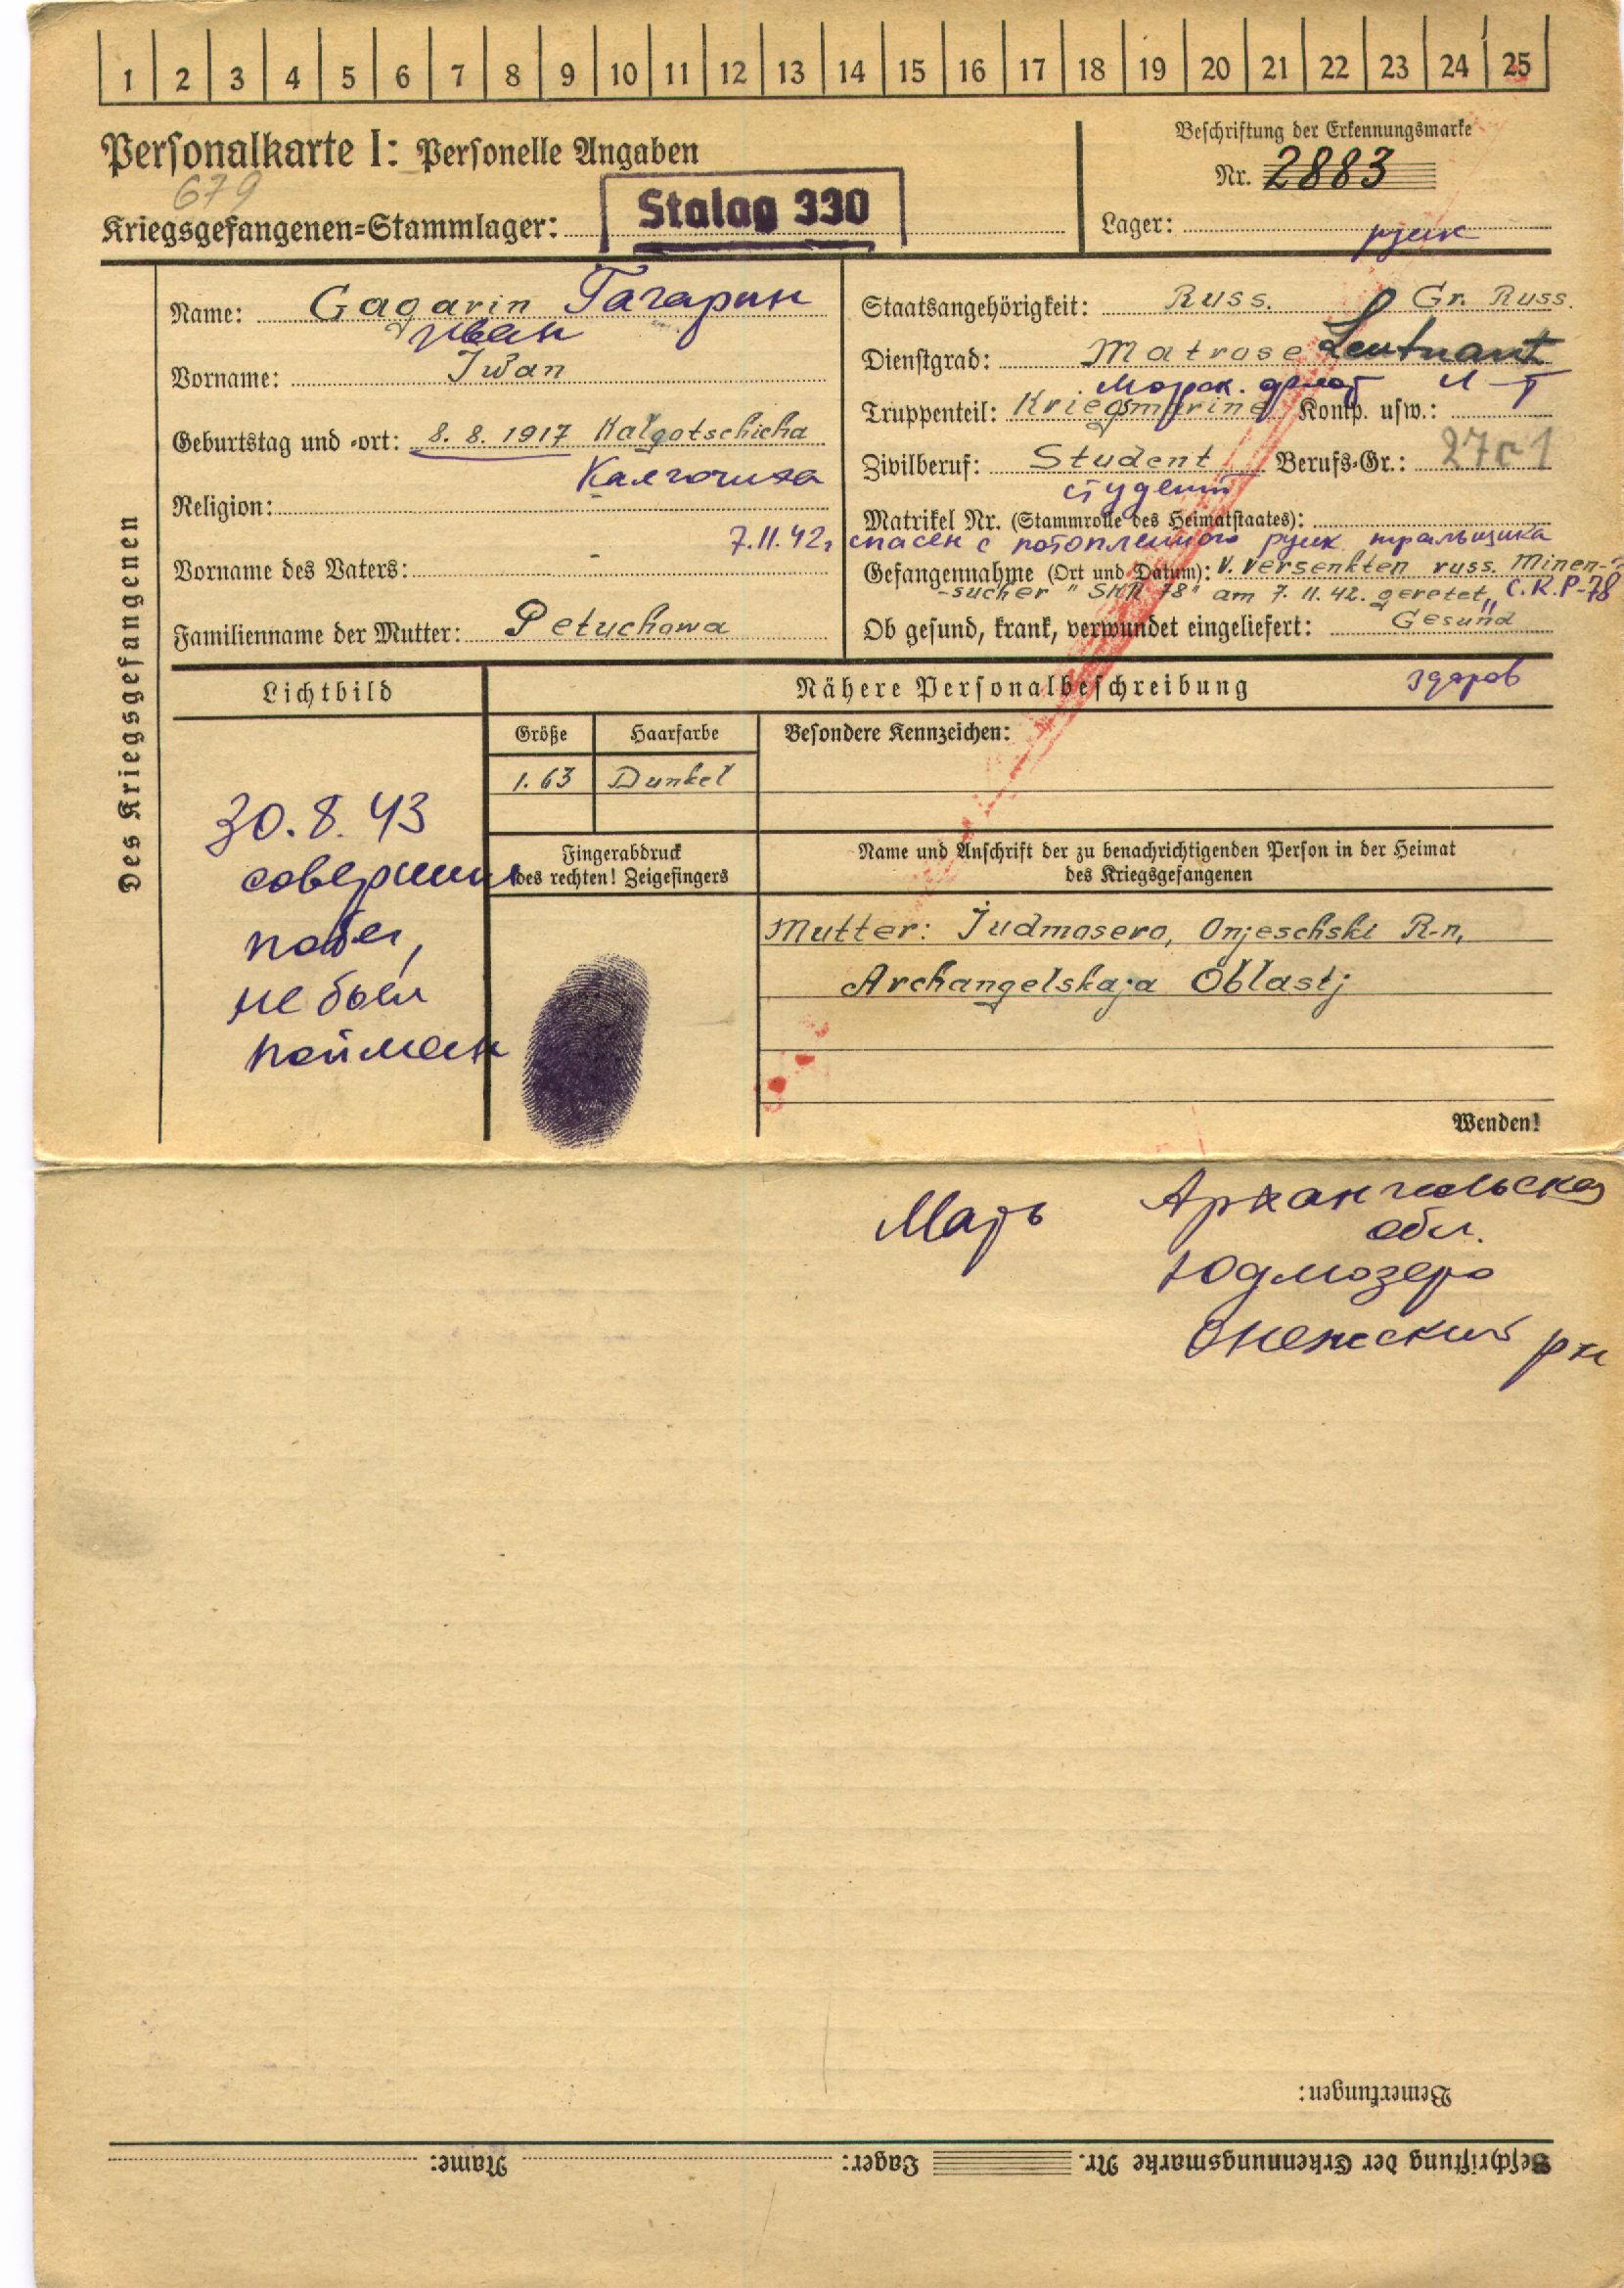 1 2 3 4 5 6 7 8 9 10 11 12 13 14 15 16 17 18 19 20 21 22 23 24 25
Personalkarte I: Personelle Angaben
679
Kriegsgefangenen-Stammlager: Stalag 330
Beschriftung der Erkennungsmarke
Nr. 2883
Lager:
Des Kriegsgefangenen
Name: Gagarin Гагарин
Иван
Vorname: Iwan
Geburtstag und -ort: 8. 8. 1917 Kalgotschicha
Калгочиха
Religion:
Vorname des Vaters: -
Familienname der Mutter: Petuchowa
русск
Staatsangehörigkeit: Russ. Gr. Russ.
Dienstgrad: Matrose Leutnant
Морск. флот Л-т
Truppenteil: Kriegsmarine Komp. usw.:
Zivilberuf: Student Berufs-Gr.: 27c1
студент
Matrikel Nr. (Stammrolle des Heimatstaates):
7.11.42г спасен с потопленного русск. тральщика
Gefangennahme (Ort und Datum): v. versenkten russ. Minen-
-sucher "SKR 78" am 7. 11. 42. geretet, С.К.Р-78
Ob gesund, krank, verwundet eingeliefert: Gesund
здоров
Lichtbild
30.8.43
совершил
побег,
не был
пойман
Nähere Personalbeschreibung
Größe Haarfarbe Besondere Kennzeichen:
1.63 Dunkel
Fingerabdruck
des rechten! Zeigefingers
Name und Anschrift der zu benachrichtigenden Person in der Heimat
des Kriegsgefangenen
Mutter: Judmosero, Onjeschski R-n,
Archangelskaja Oblastj
Wenden!
Мать Архангельская
обл.
Юдмозеро
Онежский рн
Bemerkungen:
Beschriftung der Erkennungsmarke Nr. Lager: Name: